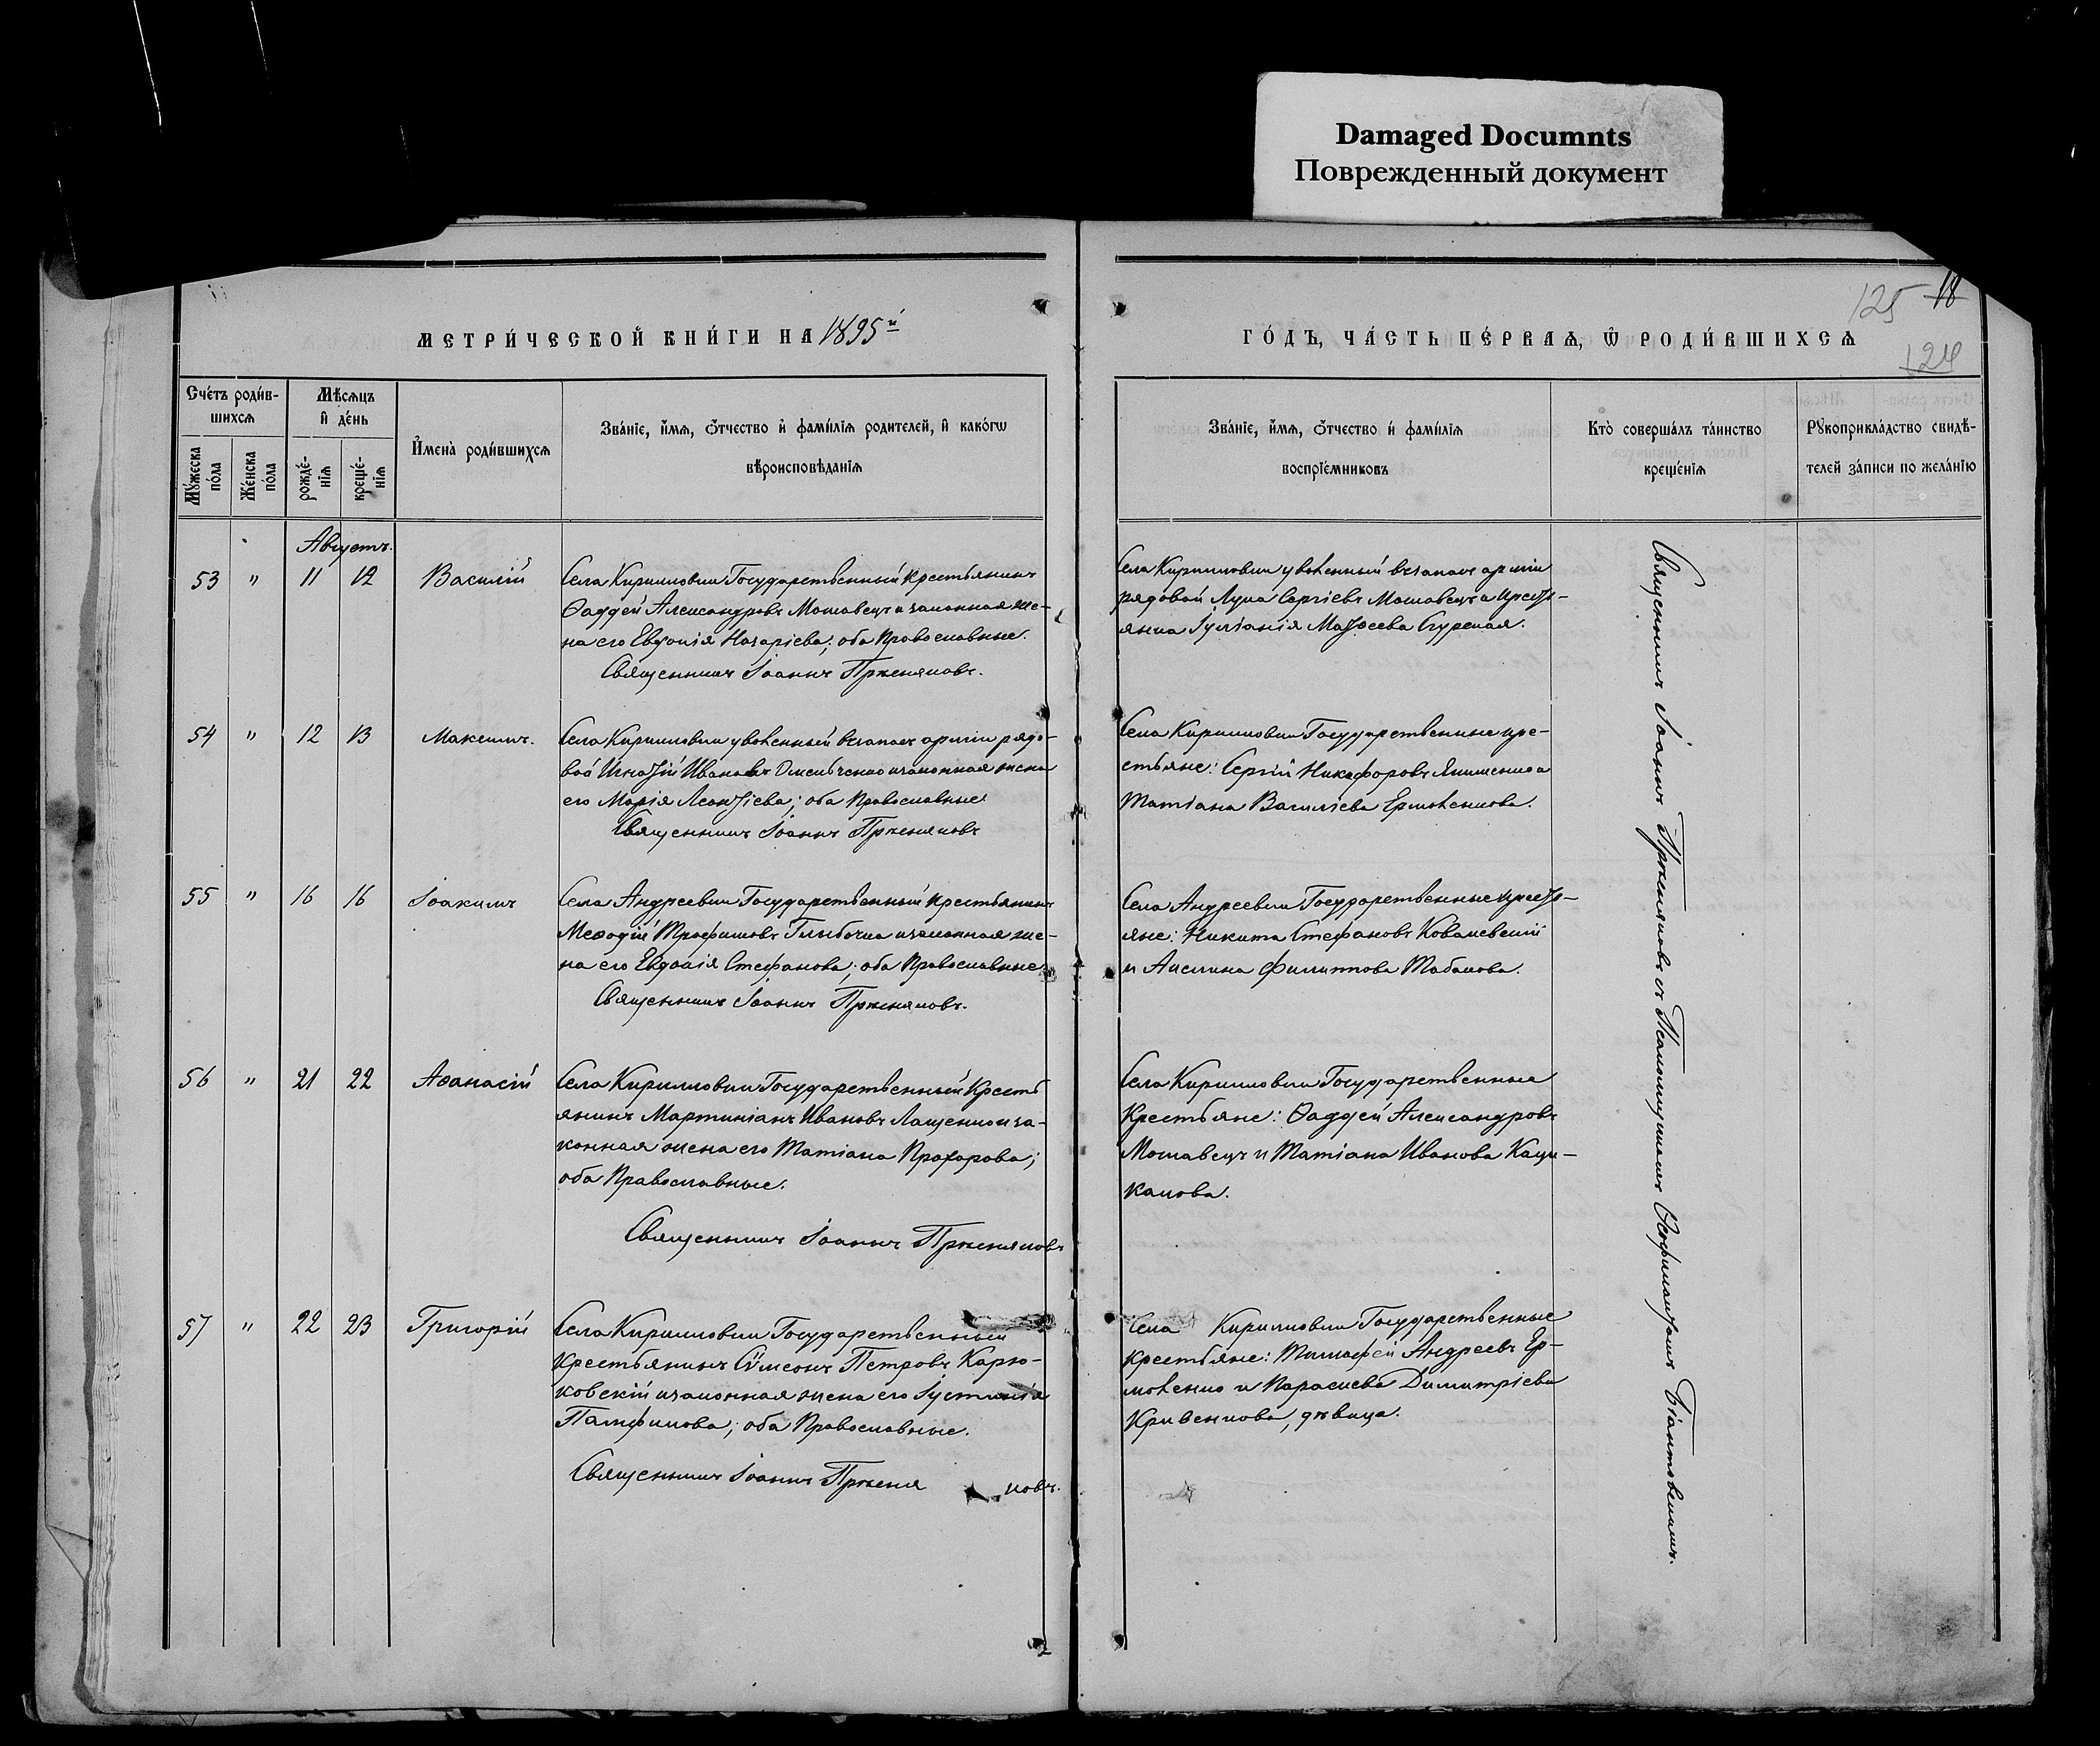 Damaged Documnts
Поврежденный документ
125 18
124
МЕТРИ́ЧЕСКОЙ КНИ́ГИ НА 1895й
ГО́ДЪ, ЧА́СТЬ ПЕ́РВАѦ, Ѡ҆ РОДИ́ВШИХСѦ
Сче́тъ роди́в-
шихсѧ
Мѣ́сѧцъ
и҆ де́нь
Мꙋ́жеска
по́ла
Же́нска
по́ла
рожде́-
нїѧ
креще́-
нїѧ
И҆мена̀ роди́вшихсѧ
Зва́нїе, и҆́мѧ, ѻ҆́тчество и҆ фами́лїѧ роди́телей, и҆ како́гѡ
вѣроисповѣ́данїѧ
Зва́нїе, и҆́мѧ, ѻ҆́тчество и҆ фами́лїѧ
воспрїе́мниковъ
Кто̀ соверша́лъ та́инство
креще́нїѧ
Рꙋкоприкла́дство свидѣ́-
телей за́писи по жела́нїю
Августъ.
53 " 11 12 Василій
Села Кирилловки Государственный крестьянинъ
Ѳаддей Александровъ Мошавецъ и законная же-
на его Евдокія Назаріева; оба Православные.
Священникъ Іоаннъ
Села Кирилловки уволенный въ запасъ арміи
рядовой Лука Сергіевъ Мошавецъ и кресть-
янка Іуліанія Матѳеева
54 " 12 13 Максимъ.
Села Кирилловки уволенный въ запасъ арміи рядо-
вой Игнатій Ивановъ Омельченко и законная жена
его Марія Леонтіева; оба Православные
Священникъ Іоаннъ
Села Кирилловки Государственные кре-
стьяне: Сергій Никифоровъ и
Татіана Василіева Ермоленкова.
55 " 16 16 Іоакимъ
Села Андреевки Государственный крестьянинъ
Меѳодій Трофимовъ и законная же-
на его Евдокія Стефанова; оба Православные
Священникъ Іоаннъ
Села Андреевки Государственные кресть-
яне: Никита Стефановъ Ковалевскій
и Акилина Филиппова Табакова.
56 " 21 22 Аѳанасій
Села Кирилловки Государственный Кресть
янинъ Мартиніанъ Ивановъ Лащенко и за-
конная жена его Татіана Прохорова;
оба Православные.
Священникъ Іоаннъ
Села Кирилловки Государственные
Крестьяне: Ѳаддей Александровъ
Мошавецъ и Татіана Иванова Каци-
калова.
57 " 22 23 Григорій
Села Кирилловки Государственный
крестьянинъ Сѵмеонъ Петровъ Карю-
ковскій и законная жена его Іустинія
Памфилова; оба Православные.
Священникъ Іоаннъ
Села Кирилловки Государственные
крестьяне: Тимофей Андреевъ Ер-
моленко и Параскева Димитріева
Кривенкова, дѣвица.
Священникъ Іоаннъ съ Псаломщикомъ